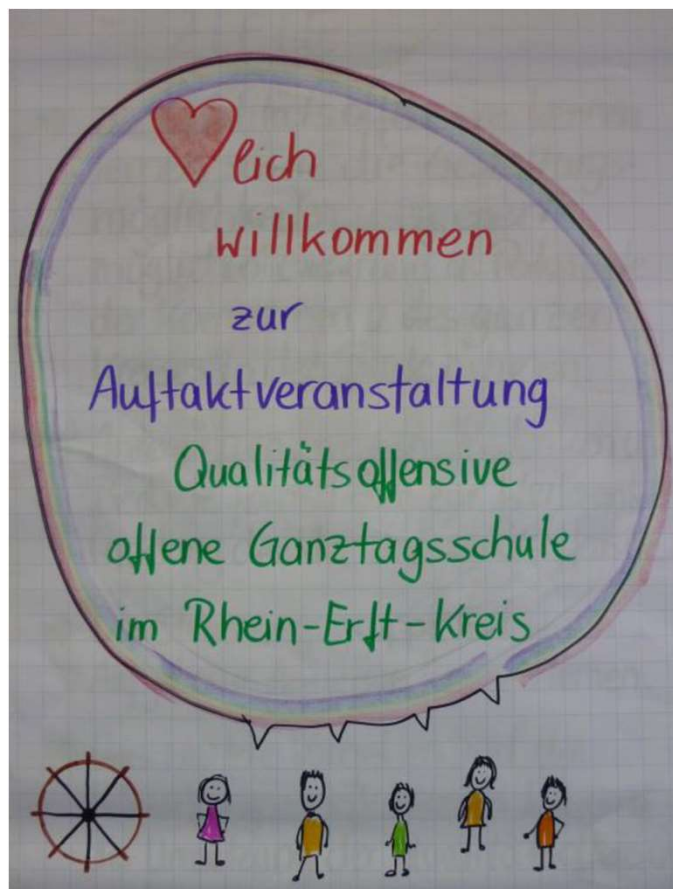 ♥lich
willkommen
zur
Auftaktveranstaltung
Qualitätsoffensive
offene Ganztagsschule
im Rhein-Erft-Kreis